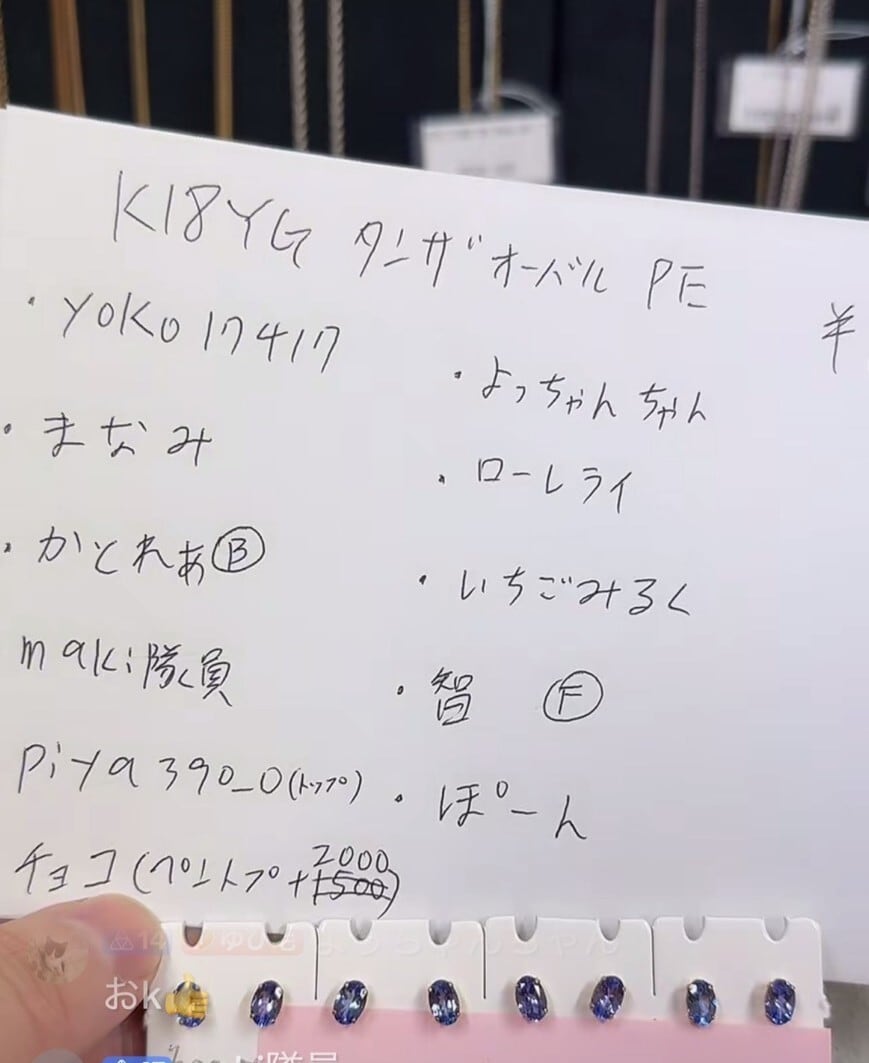 K18YG タンザ オーバル PE
¥
・YOKO17417
・まなみ
・かとれあ Ⓑ
maki隊員
Piya390_0(トップ)
チョコ(ペントプ+1500 2000)
・よっちゃんちゃん
・ローレライ
・いちごみるく
・智 Ⓕ
・ぽーん
おk👍